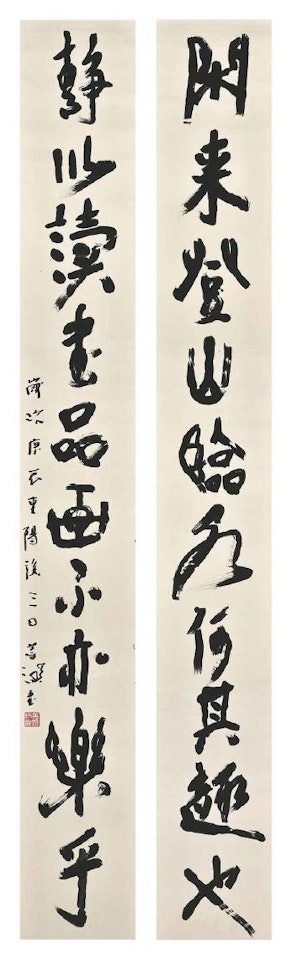 閑来登山臨水何其趣也
静以讀書品画不亦樂乎
歲次庚辰重陽後三日